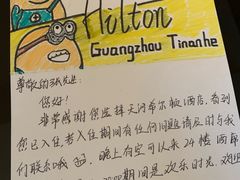 Hilton
Guangzhou Tinanhe
尊敬的
您好!
非常感谢您选择天河希尔顿酒店,看到
您已入住若入住期间有任何问题请及时与我
们联系哦 晚上有空可以来24楼酒廊
期间是欢乐时光,欢迎